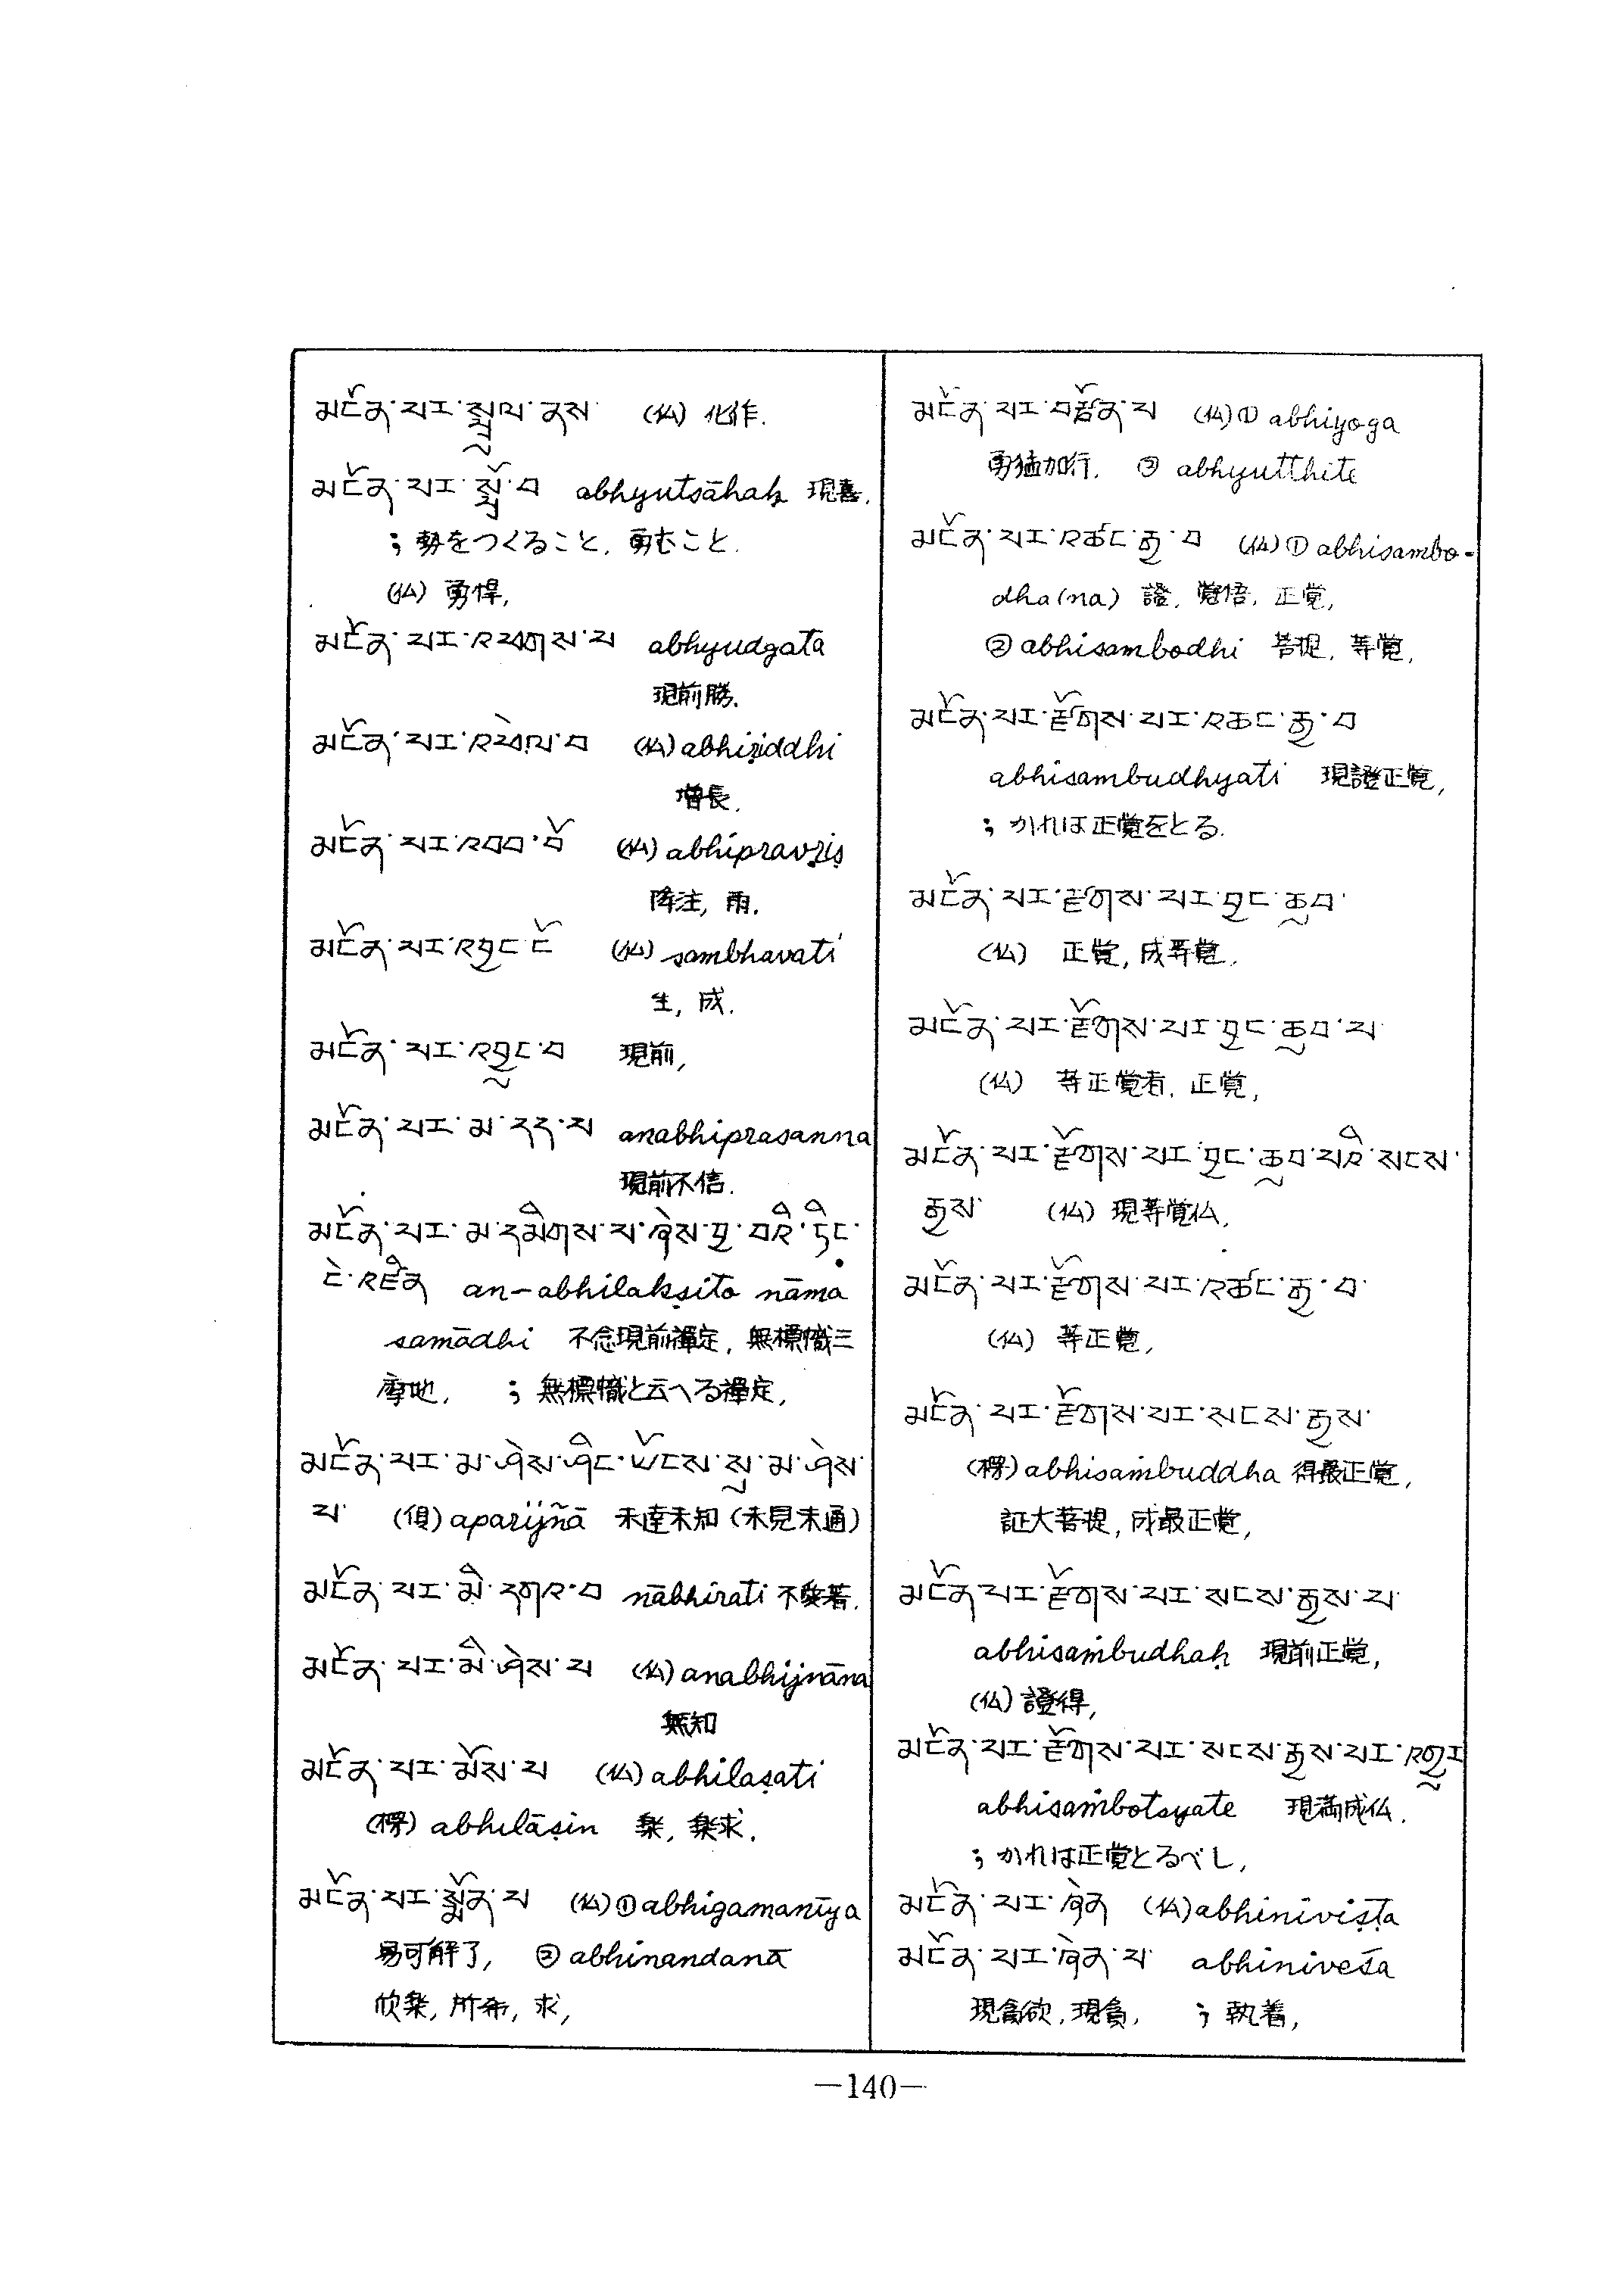 མངོན་པར་སྤྲུལ་ནས་ (仏) 化作.
མངོན་པར་སྤྲོ་བ abhyutsāhaḥ 現喜.
; 勢をつくること, 勇むこと.
(仏) 勇悍,
མངོན་པར་འཕགས་པ abhyudgata
現前勝.
མངོན་པར་འཕེལ་བ (仏) abhiṛiddhi
増長.
མངོན་པར་འབབ་བོ (仏) abhipravṛiṣ
降注, 雨.
མངོན་པར་འབྱུང་ངོ (仏) sambhavati
生, 成.
མངོན་པར་འབྱུང་བ 現前,
མངོན་པར་མ་དད་པ anabhiprasanna
現前不信.
མངོན་པར་མ་དམིགས་པ་ཞེས་བྱ་བའི་ཏིང་
ངེ་འཛིན an-abhilakṣito nāma
samādhi 不念現前禪定, 無標幟三
摩地, ; 無標幟と云へる禪定,
མངོན་པར་མ་ཤེས་ཤིང་ཡོངས་སུ་མ་ཤེས་
པ་ (倶) aparijñā 未達未知 (未見未通)
མངོན་པར་མི་དགའ་བ nābhirati 不愛著.
མངོན་པར་མི་ཤེས་པ (仏) anabhijnāna
無知
མངོན་པར་མོས་པ (仏) abhilaṣati
(楞) abhilāṣin 楽, 楽求.
མངོན་པར་སྨོན་པ (仏) ① abhigamanīya
易可解了, ② abhinandanā
欣楽, 所希, 求,
མངོན་པར་བརྩོན་པ (仏) ① abhiyoga
勇猛加行, ② abhyutthite
མངོན་པར་འཚང་རྒྱ་བ (仏) ① abhisambo-
dha(na) 證, 覚悟, 正覚,
② abhisambodhi 菩提, 等覚,
མངོན་པར་རྫོགས་པར་འཚང་རྒྱ་བ
abhisambudhyati 現證正覚,
; かれは正覚をとる.
མངོན་པར་རྫོགས་པར་བྱང་ཆུབ་
(仏) 正覚, 成等覚,
མངོན་པར་རྫོགས་པར་བྱང་ཆུབ་པ་
(仏) 等正覚者, 正覚,
མངོན་པར་རྫོགས་པར་བྱང་ཆུབ་པའི་སངས་
རྒྱས་ (仏) 現等覚仏,
མངོན་པར་རྫོགས་པར་འཚང་རྒྱ་བ་
(仏) 等正覚,
མངོན་པར་རྫོགས་པར་སངས་རྒྱས་
(楞) abhisaṁbuddha 得最正覚,
証大菩提, 成最正覚,
མངོན་པར་རྫོགས་པར་སངས་རྒྱས་པ་
abhisaṁbudhaḥ 現前正覚,
(仏) 證得,
མངོན་པར་རྫོགས་པར་སངས་རྒྱས་པར་འགྱུར
abhisaṁbotsyate 現満成仏.
; かれは正覚とるべし,
མངོན་པར་ཞེན (仏) abhiniviṣṭa
མངོན་པར་ཞེན་པ་ abhiniveśa
現貪欲, 現貪, ; 執着,
—140—